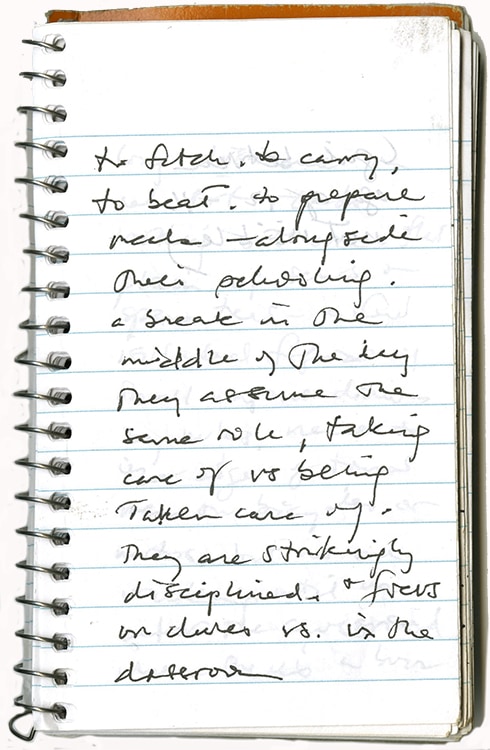 to fetch. to carry,
to beat. to prepare
meals – alongside
their schooling.
a break in the
middle of the day
they assume the
same role, taking
care of vs being
Taken care of.
They are strikingly
disciplined. + focus
on duties vs. in the
classroom